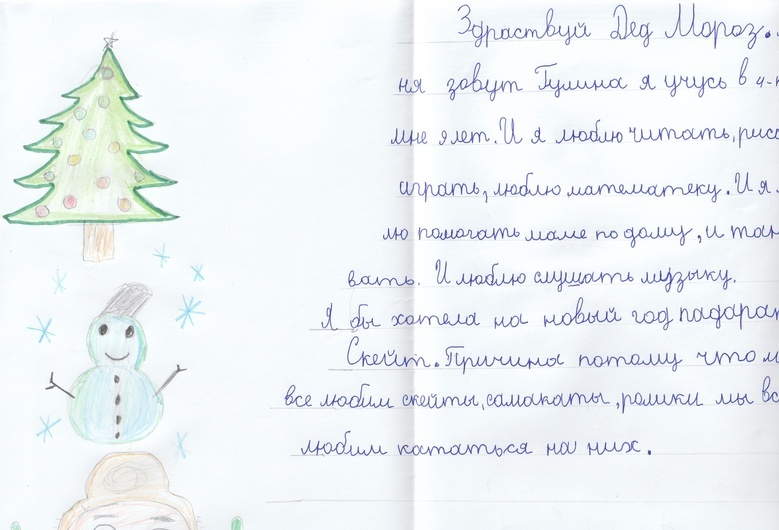 Здраствуй Дед Мороз.
ня зовут Гулина я учусь в 4-к
мне 9 лет. И я люблю читать, рисо
играть, люблю математеку. И я
лю помогать маме по дому, и тан
вать. И люблю слушать музыку.
Я бы хотела на новый год падаран
Скейт. Причина потому что м
все любим скейты, самакаты, ролики мы вс
любим кататься на них.